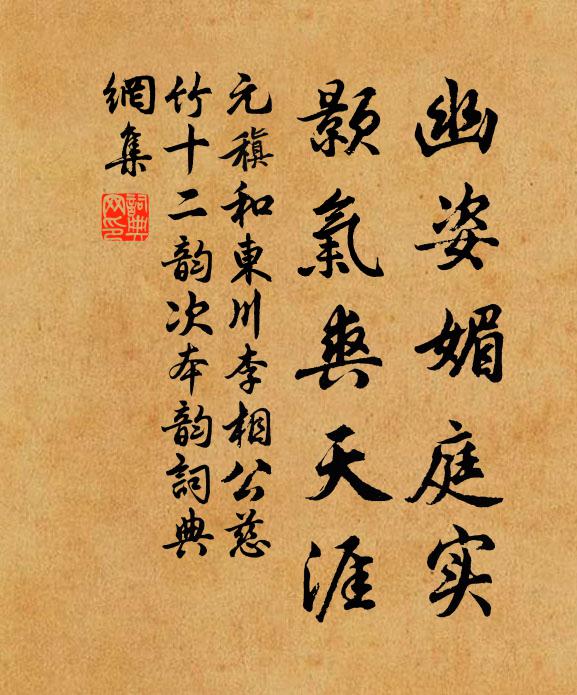 幽姿媚庭实
颢氣爽天涯
元稹和東川李相公慈
竹十二韵次本韵詞典
網集
詞典网印